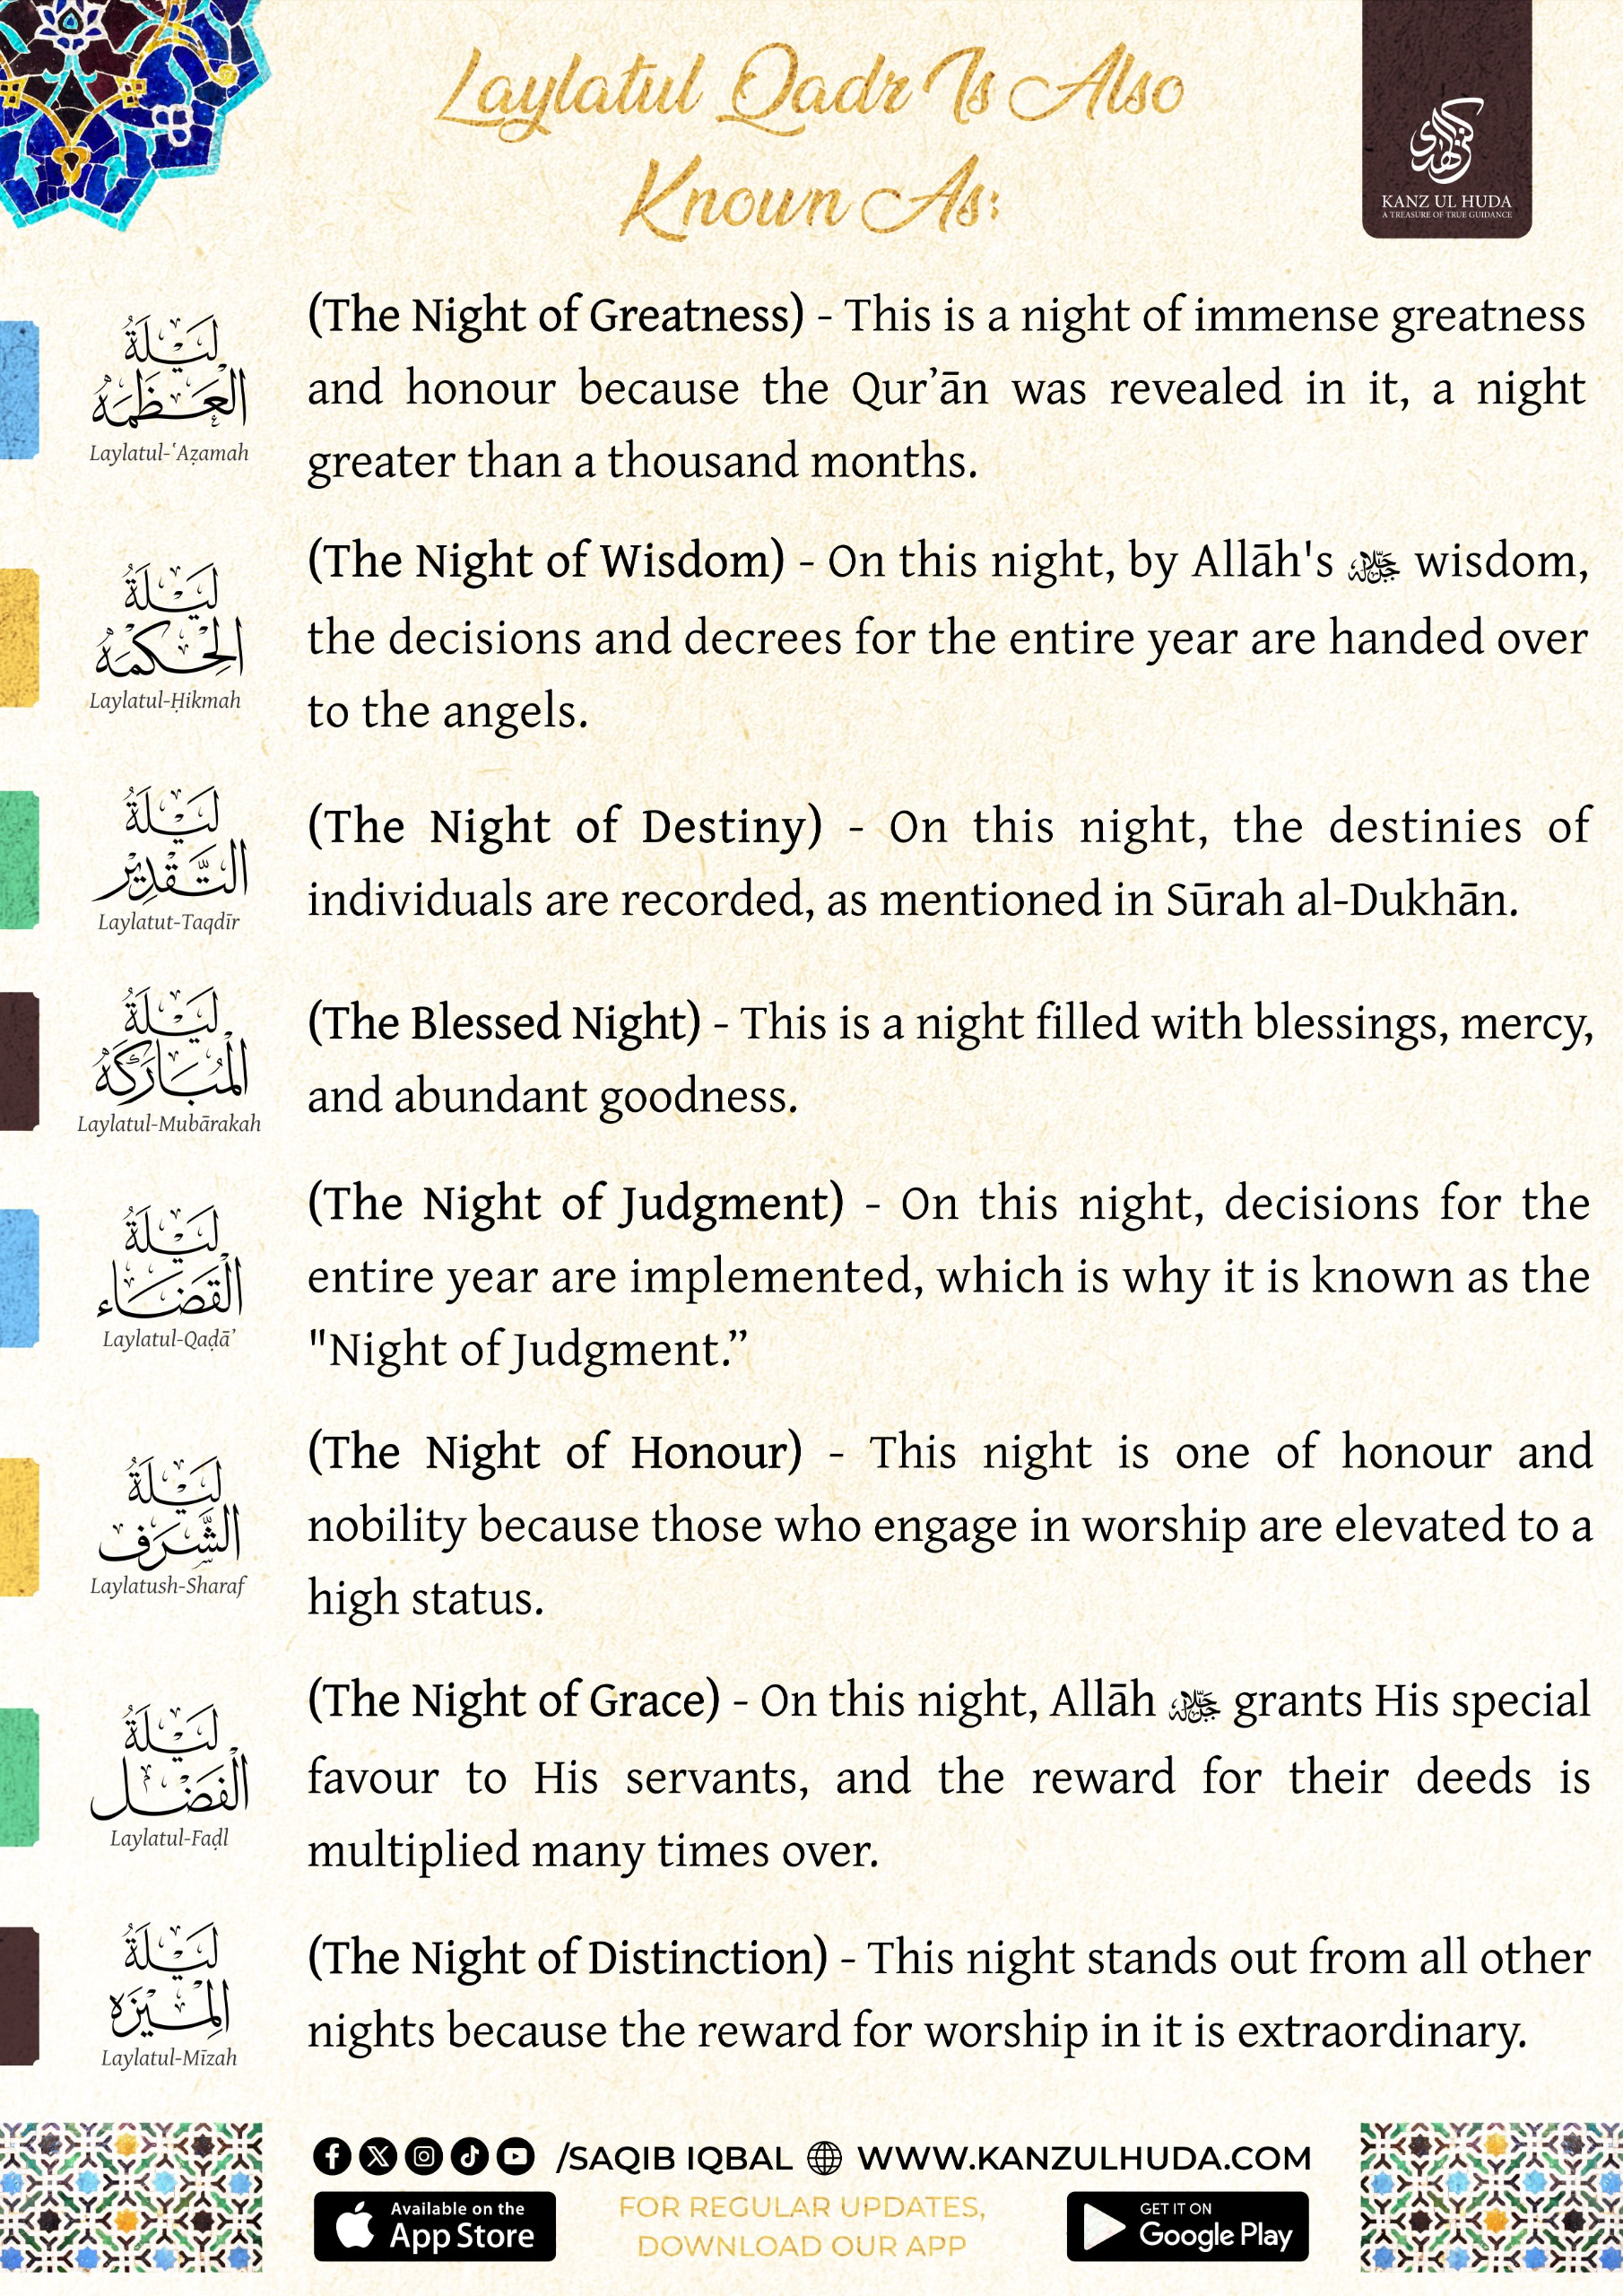 Laylatul Qadr Is Also
Known As:
كنز الهدى
KANZ UL HUDA
A TREASURE OF TRUE GUIDANCE
لَيْلَةُ
الْعَظَمَةُ
Laylatul-ʿAẓamah
(The Night of Greatness) - This is a night of immense greatness
and honour because the Qur’ān was revealed in it, a night
greater than a thousand months.
لَيْلَةُ
الْحِكْمَةُ
Laylatul-Ḥikmah
(The Night of Wisdom) - On this night, by Allāh's ﷻ wisdom,
the decisions and decrees for the entire year are handed over
to the angels.
لَيْلَةُ
التَّقْدِيْر
Laylatut-Taqdīr
(The Night of Destiny) - On this night, the destinies of
individuals are recorded, as mentioned in Sūrah al-Dukhān.
لَيْلَةُ
الْمُبَارَكَةُ
Laylatul-Mubārakah
(The Blessed Night) - This is a night filled with blessings, mercy,
and abundant goodness.
لَيْلَةُ
الْقَضَاء
Laylatul-Qaḍā’
(The Night of Judgment) - On this night, decisions for the
entire year are implemented, which is why it is known as the
"Night of Judgment.”
لَيْلَةُ
الشَّرَف
Laylatush-Sharaf
(The Night of Honour) - This night is one of honour and
nobility because those who engage in worship are elevated to a
high status.
لَيْلَةُ
الْفَضْل
Laylatul-Faḍl
(The Night of Grace) - On this night, Allāh ﷻ grants His special
favour to His servants, and the reward for their deeds is
multiplied many times over.
لَيْلَةُ
الْمِيْزَه
Laylatul-Mīzah
(The Night of Distinction) - This night stands out from all other
nights because the reward for worship in it is extraordinary.
/SAQIB IQBAL WWW.KANZULHUDA.COM
Available on the
App Store
FOR REGULAR UPDATES,
DOWNLOAD OUR APP
GET IT ON
Google Play